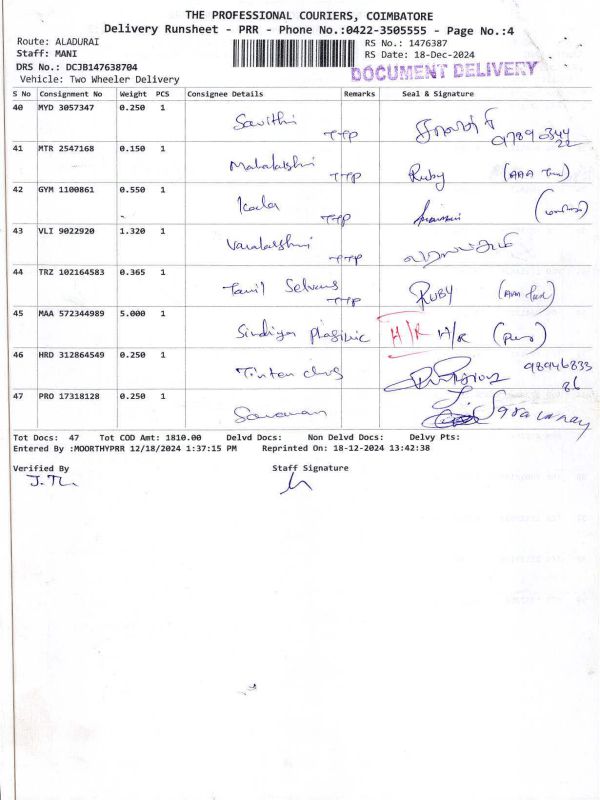 THE PROFESSIONAL COURIERS, COIMBATORE
Delivery Runsheet - PRR - Phone No.:0422-3505555 - Page No.:4
Route: ALADURAI RS No.: 1476387
Staff: MANI RS Date: 18-Dec-2024
DRS No.: DCJB147638704 DOCUMENT DELIVERY
Vehicle: Two Wheeler Delivery
S No Consignment No Weight PCS Consignee Details Remarks Seal & Signature
40 MYD 3057347 0.250 1
Savithi TTP
41 MTR 2547168 0.150 1
Mahalakshmi TTP Ruby
42 GYM 1100861 0.550 1
TTP
43 VLI 9022920 1.320 1
TTP
44 TRZ 102164583 0.365 1
Tamil TTP RUBY
45 MAA 572344989 5.000 1
H/R H/R
46 HRD 312864549 0.250 1
47 PRO 17318128 0.250 1
Saravanan Saravanan
Tot Docs: 47 Tot COD Amt: 1810.00 Delvd Docs: Non Delvd Docs: Delvy Pts:
Entered By :MOORTHYPRR 12/18/2024 1:37:15 PM Reprinted On: 18-12-2024 13:42:38
Verified By Staff Signature